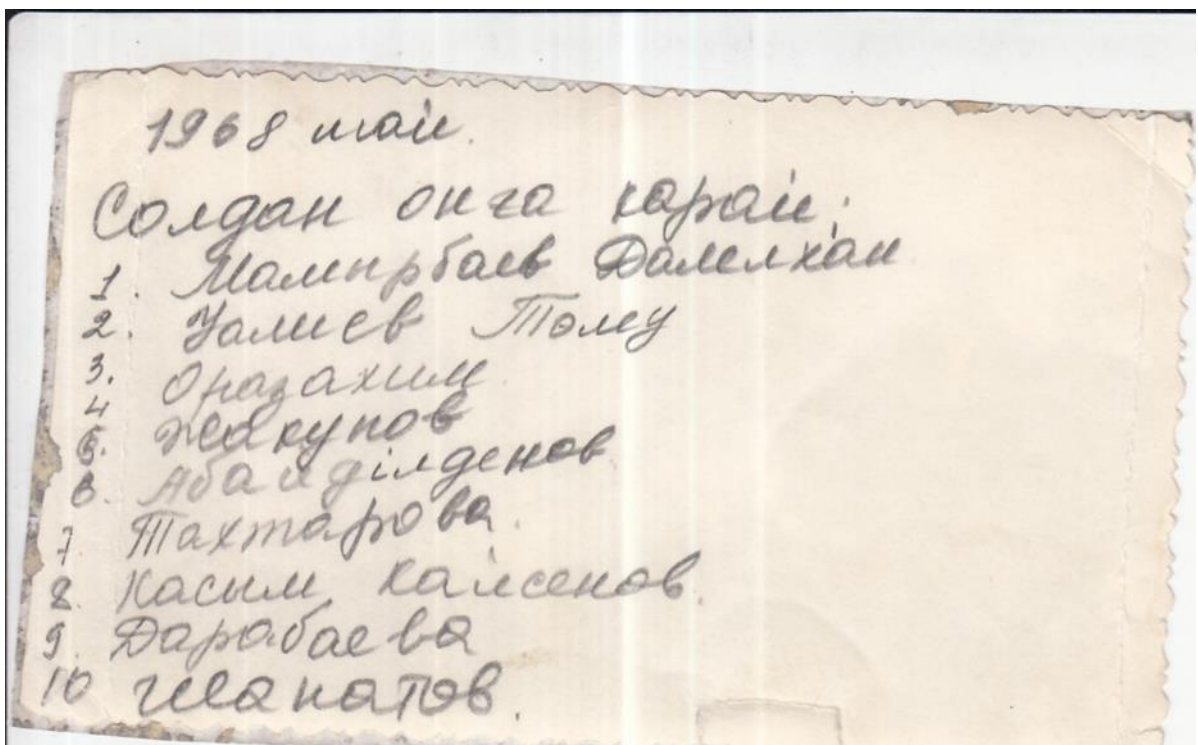 1968 май.
Солдан онга карай:
1. Мамырбаев Далелхан
2. Уалиев Толеу
3. Оразахим
4 Жакупов
5. Абай ділденов
6.
7 Тахтарова.
8. Касым Кайсенов.
9. Дарабаева
10 Шанатов.